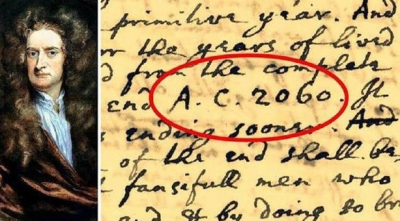 primitive year. And
for the years of lived
d from the complete
end A. C. 2060. It
ending sooner. And
of the end shall be
fansifull men who
and by doing so br